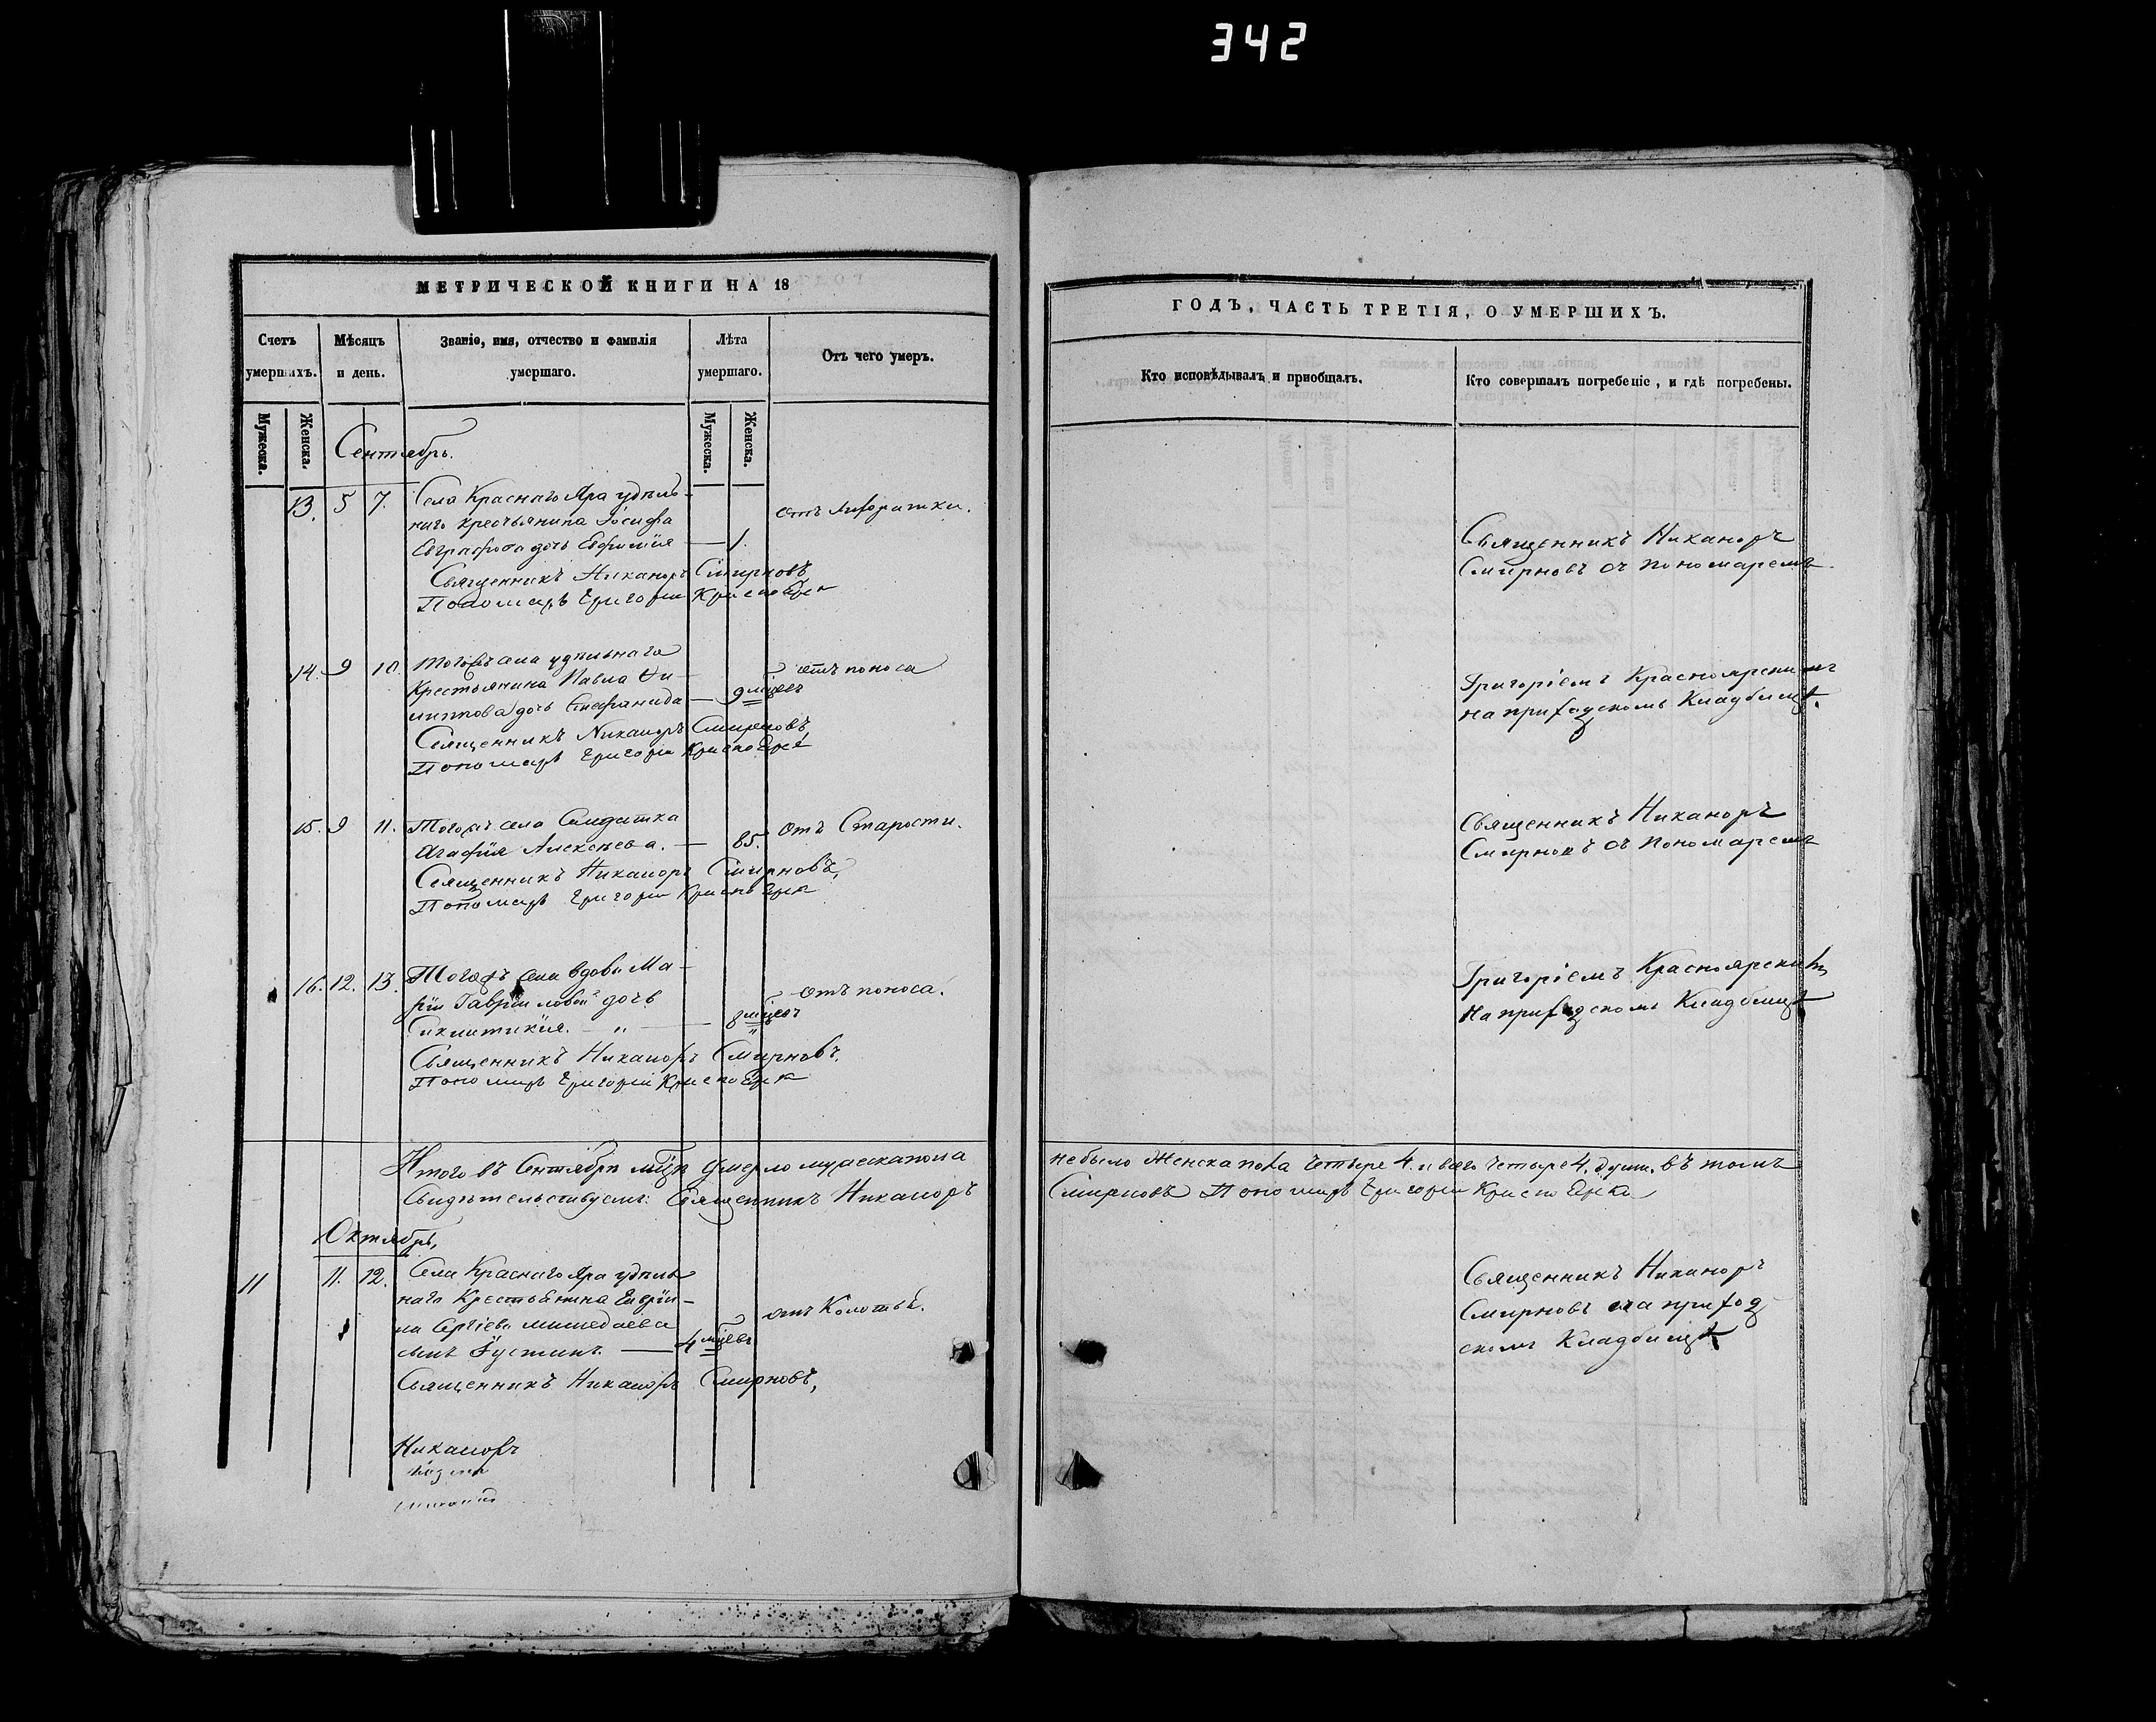 342
МЕТРИЧЕСКОЙ КНИГИ НА 18
Счетъ умершихъ.
Мѣсяцъ и день.
Званіе, имя, отчество и фамилія умершаго.
Лѣта умершаго.
Отъ чего умеръ.
Мужеска.
Женска.
Мужеска.
Женска.
Сентябрь.
13. 5 7. Села Краснаго Яра удѣль-
наго крестьянина Іосифа
Евграфова дочь Евфимія — 1. отъ лихорадки.
Священникъ Никаноръ Смирновъ
Пономарь Григорій
14. 9 10. Тогожъ села удѣльнаго
Крестьянина Павла Фи-
липпова дочь Стефанида — 9 мцевъ отъ поноса
Священникъ Никаноръ Смирновъ,
Пономарь Григорій
15. 9 11. Тогожъ села Солдатка
Агафія Алексѣева. — 85. отъ Старости.
Священникъ Никаноръ Смирновъ,
Пономарь Григорій
16. 12. 13. Тогожъ села вдовы Ма-
ріи Гавриловой дочь
Сиклитикія. — „ — 8 мцевъ отъ поноса.
Священникъ Никаноръ Смирновъ,
Пономарь Григорій
Итого въ Сентябрѣ мцѣ умерло мужеска пола
Свидѣтельствуемъ: Священникъ Никаноръ
Октябрь,
11 11. 12. Села Краснаго Яра удѣль
наго Крестьянина Гаврі-
ла Сергіева
сынъ Іустинъ. — 4 мцевъ отъ Колотья.
Священникъ Никаноръ Смирновъ,
Никаноръ
ГОДЪ, ЧАСТЬ ТРЕТІЯ, О УМЕРШИХЪ.
Кто исповѣдывалъ и пріобщалъ.
Кто совершалъ погребеніе, и гдѣ погребены.
Священникъ Никаноръ
Смирновъ съ пономаремъ
Григоріемъ Красноярскимъ
на приходскомъ Кладбищѣ.
Священникъ Никаноръ
Смирновъ съ пономаремъ
Григоріемъ Красноярскимъ
на приходскомъ Кладбищѣ
не было Женска пола Четыре 4. и всего Четыре 4. души. въ томъ
Смирновъ Пономарь Григорій
Священникъ Никаноръ
Смирновъ на приход
скомъ Кладбищѣ